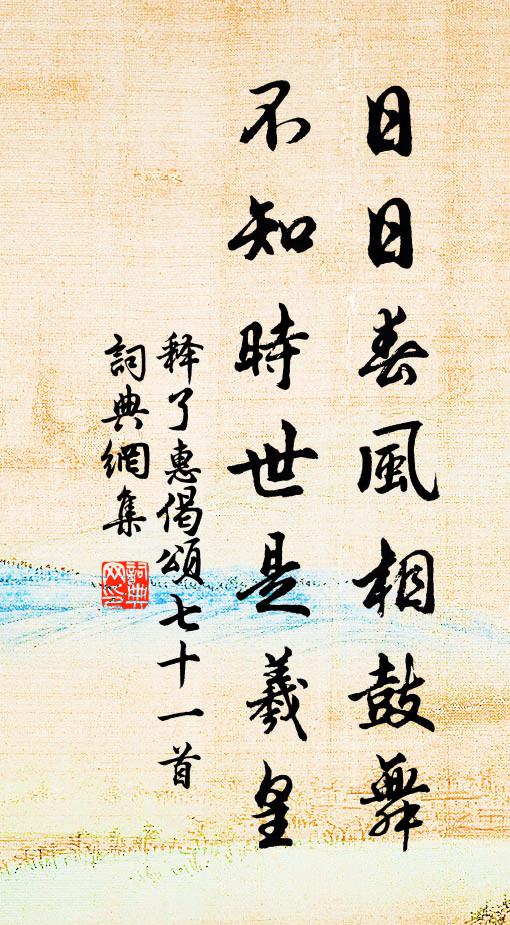 日日春風相鼓舞
不知時世是羲皇
释了惠偈頌七十一首
詞典網集